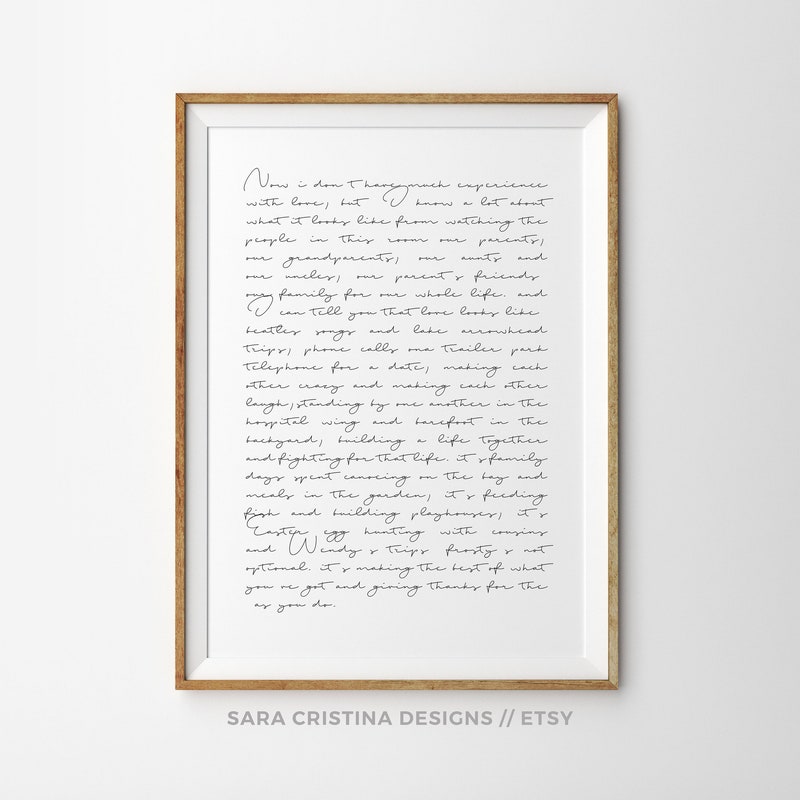 Now i don t have much experience
with love, but I know a lot about
what it looks like from watching the
people in this room our parents,
our grandparents, our aunts and
our uncles, our parent s friends
our family for our whole life. and
I can tell you that love looks like
beatles songs and lake arrowhead
trips, phone calls ona trailer park
telephone for a date, making each
other crazy and making each other
laugh, standing by one another in the
hospital wing and barefoot in the
backyard, building a life together
and fighting for that life. it s family
days spent canoeing on the bay and
meals in the garden, it s feeding
fish and building playhouses, it s
Easter egg hunting with cousins
and Wendy s trips frosty s not
optional. it s making the best of what
you ve got and giving thanks for the
as you do.
SARA CRISTINA DESIGNS // ETSY